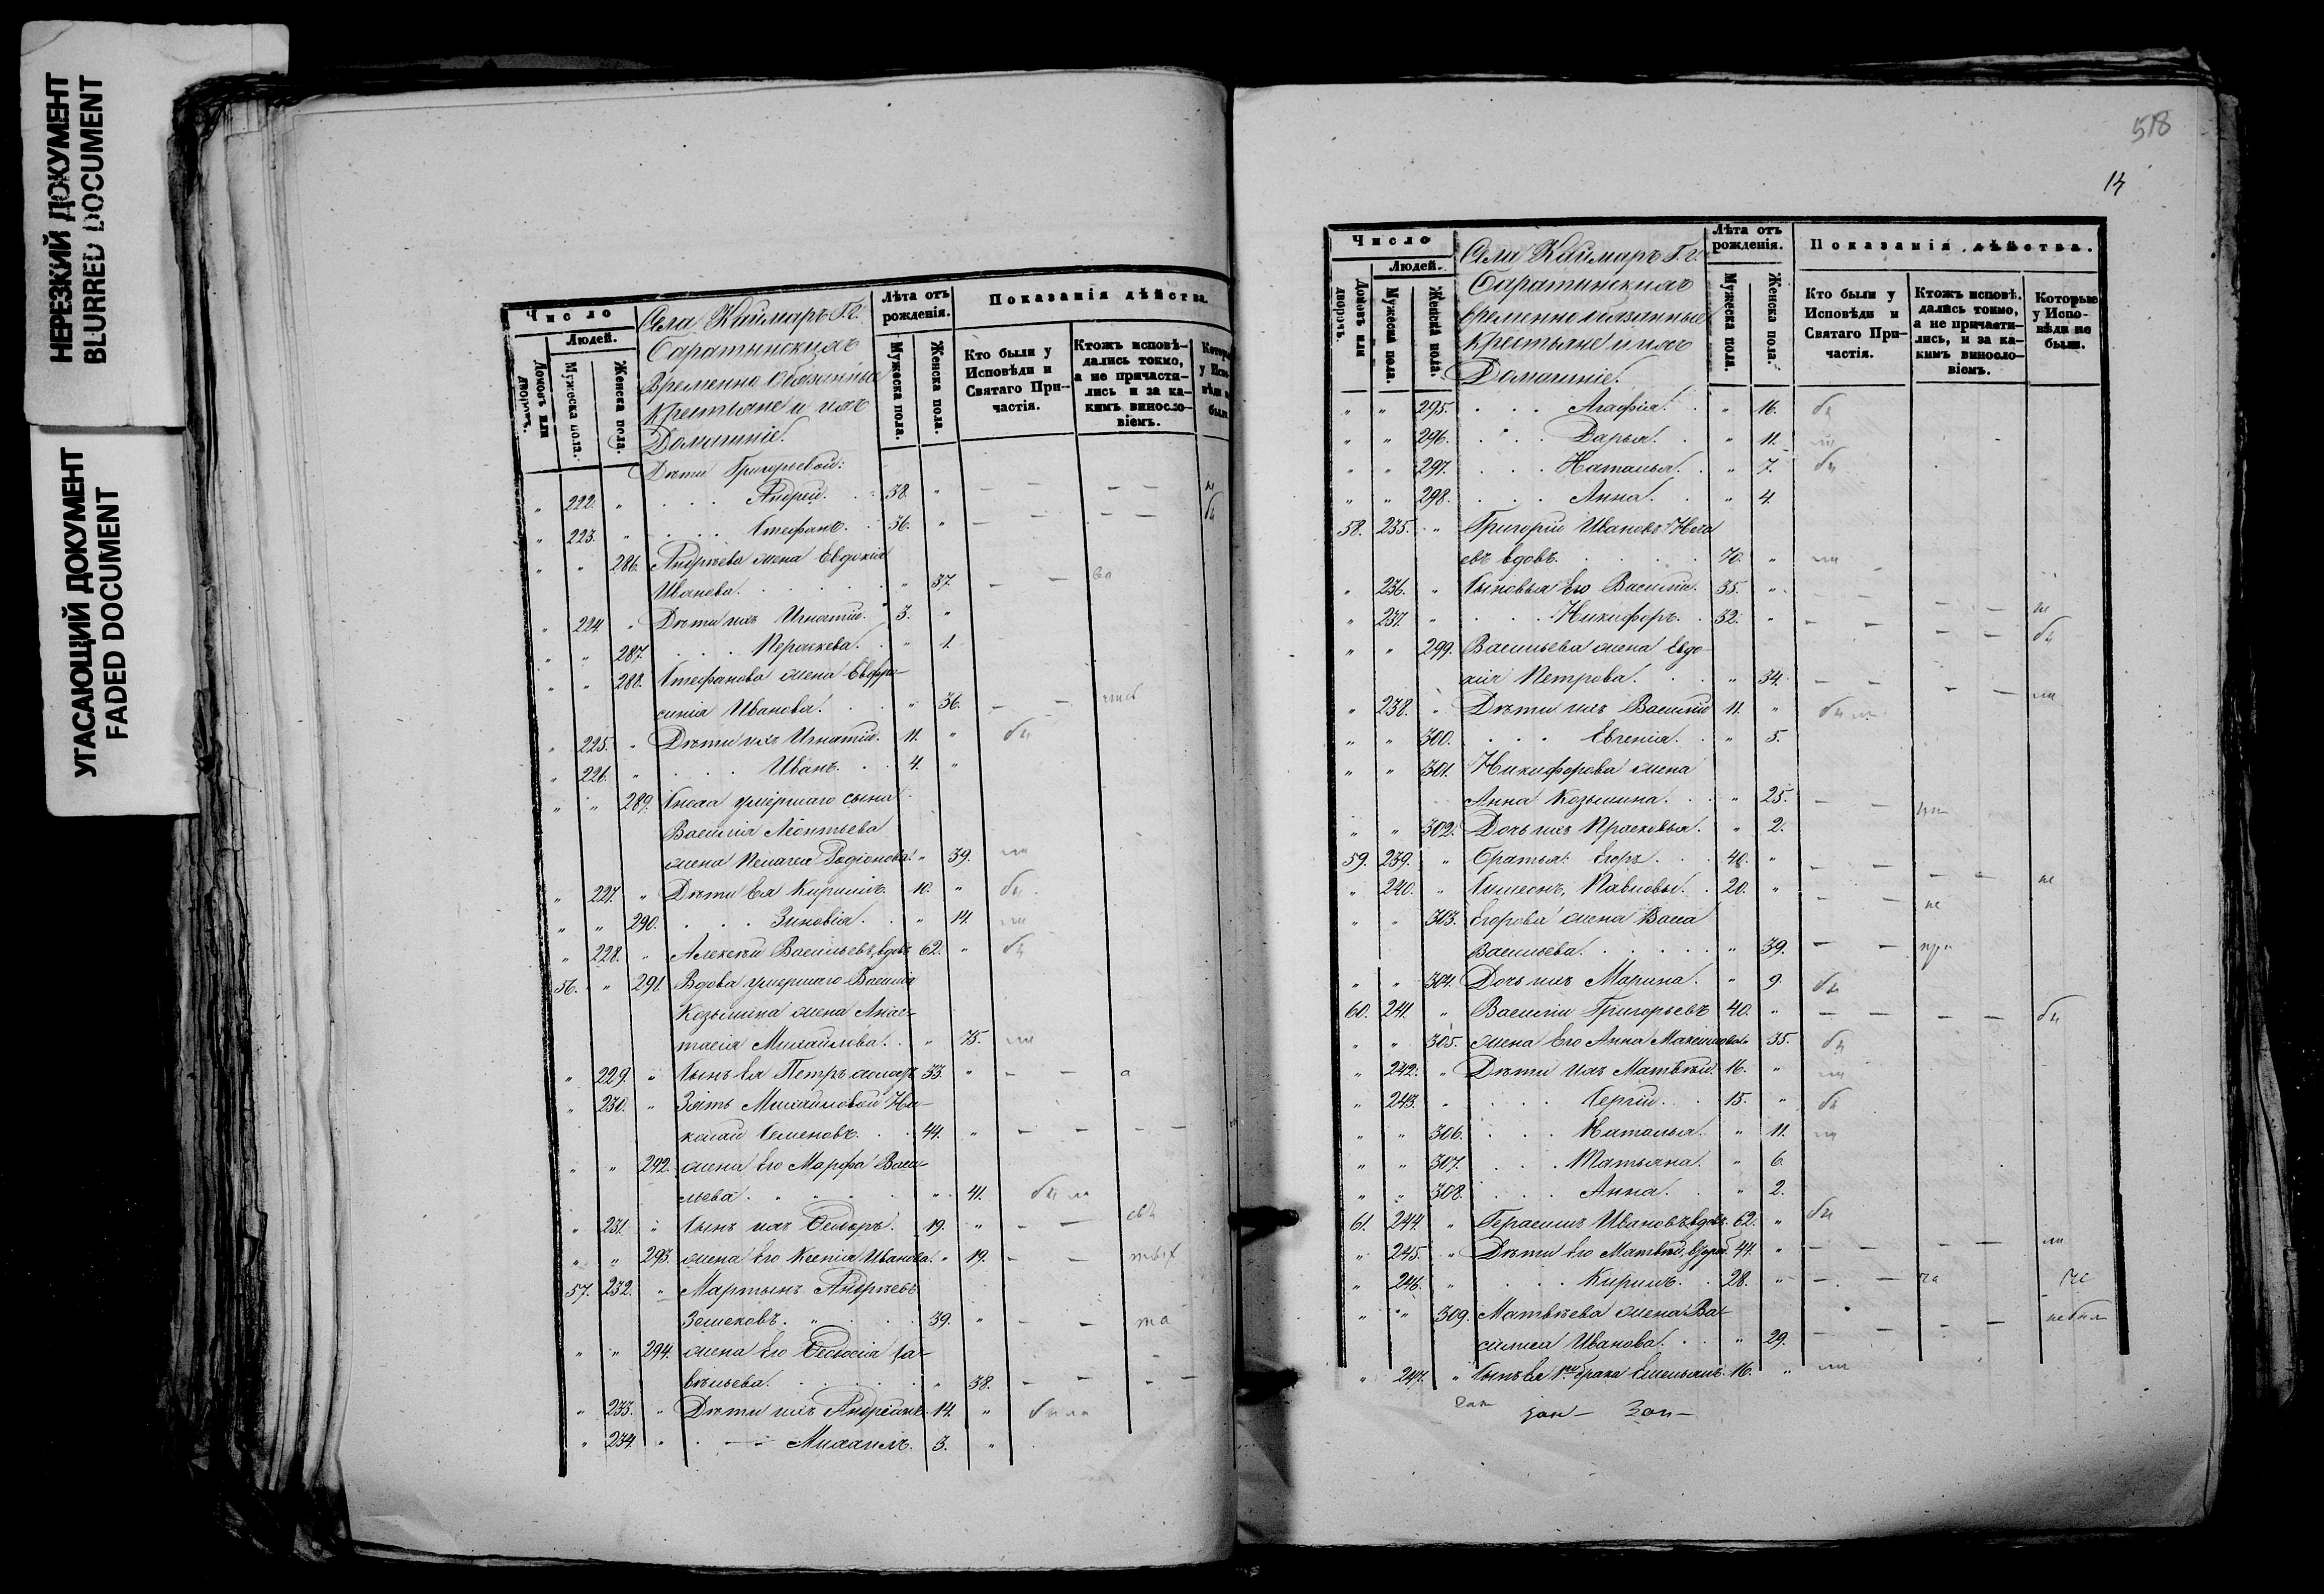 НЕРЕЗКИЙ ДОКУМЕНТ
BLURRED DOCUMENT
УГАСАЮЩИЙ ДОКУМЕНТ
FADED DOCUMENT
Число
Людей.
Домовъ или дворовъ.
Мужеска пола.
Женска пола.
Села Каймаръ Г. г.
Баратынскихъ
Временно Обязанные
Крестьяне и ихъ
Домашніе.
Лѣта отъ рожденія.
Мужеска пола.
Женска пола.
Показанія дѣйства.
Кто были у Исповѣди и Святаго Причастія.
Ктожъ исповѣдались токмо, а не причастились и за какимъ винословіемъ.
Дѣти Григорьевой:
" 222. " . . . Андрей. 38. "
" 223. " . . . Стефанъ. 36. "
" " 286. Андреева жена Евдокія
Иванова. " 37.
" 224. " Дѣти ихъ Игнатій. 3. "
" " 287. . . . Параскева. " 1.
" " 288. Стефанова жена Евфро-
синія Иванова. " 36.
" 225. " Дѣти ихъ Игнатій. 11. " бы
" 226. " . . . Иванъ. 4. "
" " 289. Сноха умершаго сына
Василія Леонтьева
жена Пелагея Родіонова. " 39. ли
" 227. " Дѣти Ея Кириллъ. 10. " бы
" " 290. . . . Зиновія. " 14. ли
" 228. " Алексѣй Васильевъ, вдовъ 62. " бы
56. " 291. Вдова умершаго Василія
Козьмина жена Анас-
тасія Михайлова. " 75. ли
" 229. " Сынъ Ея Петръ холостъ 33. "
" 230. " Зять Михайловой Ни-
колай Семеновъ. 44. "
" " 292. жена Его Марфа Васи-
льева. " 41. были
" 231. " Сынъ ихъ Ѳедоръ. 19. "
" " 293. жена Его Ксенія Иванова. " 19.
57. 232. " Мартынъ Андреевъ
39. "
" " 294. жена Его Ѳедосія Са-
вельева. " 38.
" 233. " Дѣти ихъ 14. " были
" 234. " Михаилъ. 3. "
518
14
Число
Людей.
Домовъ или дворовъ.
Мужеска пола.
Женска пола.
Села Каймаръ Г. г.
Баратинскихъ
временно обязанные
Крестьяне и ихъ
Домашніе.
Лѣта отъ рожденія.
Мужеска пола.
Женска пола.
Показанія дѣйства.
Кто были у Исповѣди и Святаго Причастія.
Ктожъ исповѣдались токмо, а не причастились, и за какимъ винословіемъ.
Которые у Исповѣди не были.
" " 295. . . . Агафія. " 16. бы
" " 296. . . . Дарья. " 11. ли
" " 297. . . . Наталья. " 7. бы
" " 298. . . . Анна. " 4.
58. 235. " Григорій Ивановъ
евъ вдовъ. 70. " ли
" 236. " Сыновья Его Василій. 35. "
" 237. " . . . Никифоръ. 32. " не
" " 299. Васильева жена Евдо- бы
кія Петрова. " 34. ли
" 238. " Дѣти ихъ Василій 11. " были
" " 300. . . . Евгенія. " 5.
" " 301. Никифорова жена
Анна Козьмина. " 25.
" " 302. Дочь ихъ Прасковья. " 2.
59. 239. " Братья: Егоръ. 40. "
" 240. " Симеонъ, Павловы. 20. " не
" " 303. Егорова жена Васса не
Васильева. " 39. при
" " 304. Дочь ихъ Марина. " 9. бы
60. 241. " Василій Григорьевъ 40. " бы
" " 305. жена Его Анна Максимова " 35. бы
" 242. " Дѣти ихъ Матвѣй. 16. " ли
" 243. " . . . Сергій. 15. " бы
" " 306. . . . Наталья. " 11. ли
" " 307. . . . Татьяна. " 6.
" " 308. . . . Анна. " 2.
61. 244. " Герасимъ Ивановъ, вдовъ. 62. " бы
" 245. " Дѣти Его Матвѣй, 44. " ли
" 246. " . . . Кирилъ. 28. "
" " 309. Матвѣева жена Ва-
силиса Иванова. " 29.
" 247. " Сынъ Ея 1го брака Емельянъ. 16. " ли